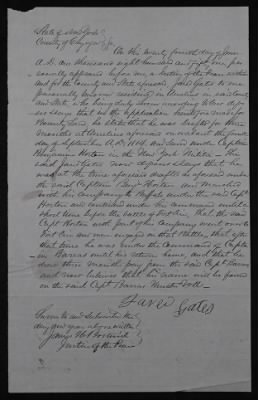 State of New York
County of Cayuga } ss
On the twenty fourth day of June
A.D. one thousand eight hundred and fifty one per-
sonally appeared before me, a Justice of the Peace within
and for the County and State aforesaid, Jared Gates to me
personally known residing in Aurelius in said County
and State who being duly sworn according to law de-
poses & says that in the application heretofore made for
Bounty Land he stated that he was drafted for three
months at Aurelius aforesaid on or about the first
day of September A.D. 1814, and served under Captain
Benjamin Horton in the New York Militia. The
said Jared Gates now deposes & says that he
was at the time aforesaid drafted as aforesaid under
the said Captain Benj Horton and marched
with his company to Buffalo under the said Capt
Horton and continued under his command until a
short time before the battle of Fort Erie, that the said
Capt Horton with part of his Company went over to
Fort Erie and were engaged in that Battle, that after
that time he was under the Command of Capta-
in Barnes until his return home, and that he
drew three months pay from the said Capt Barnes
and now believes that his name will be found
on the said Capt Barnes Muster Roll
Jared Gates
Sworn to and Subscribed the
day and year above written
Justice of the Peace